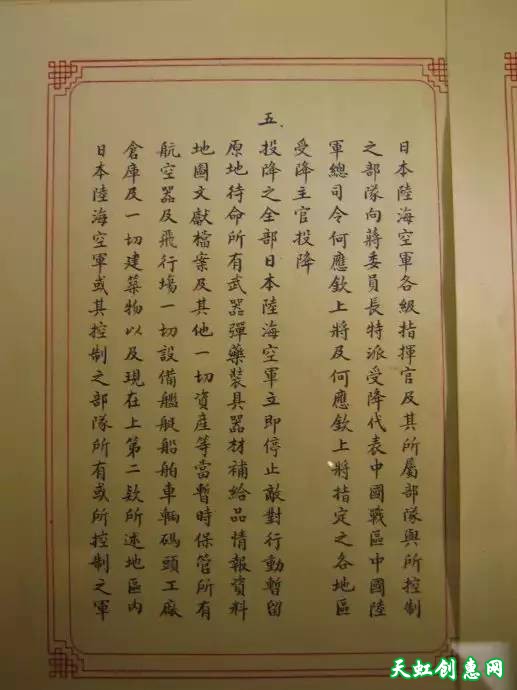 日本陸海空軍各級指揮官及其所屬部隊與所控制
之部隊向蔣委員長特派受降代表中國戰區中國陸
軍總司令何應欽上將及何應欽上將指定之各地區
受降主官投降
五、
投降之全部日本陸海空軍立即停止敵對行動暫留
原地待命所有武器彈藥裝具器材補給品情報資料
地圖文獻檔案及其他一切資產等當暫時保管所有
航空器及飛行場一切設備艦艇船舶車輛碼頭工廠
倉庫及一切建築物以及現在上第二款所述地區內
日本陸海空軍或其控制之部隊所有或所控制之軍
天虹创惠网